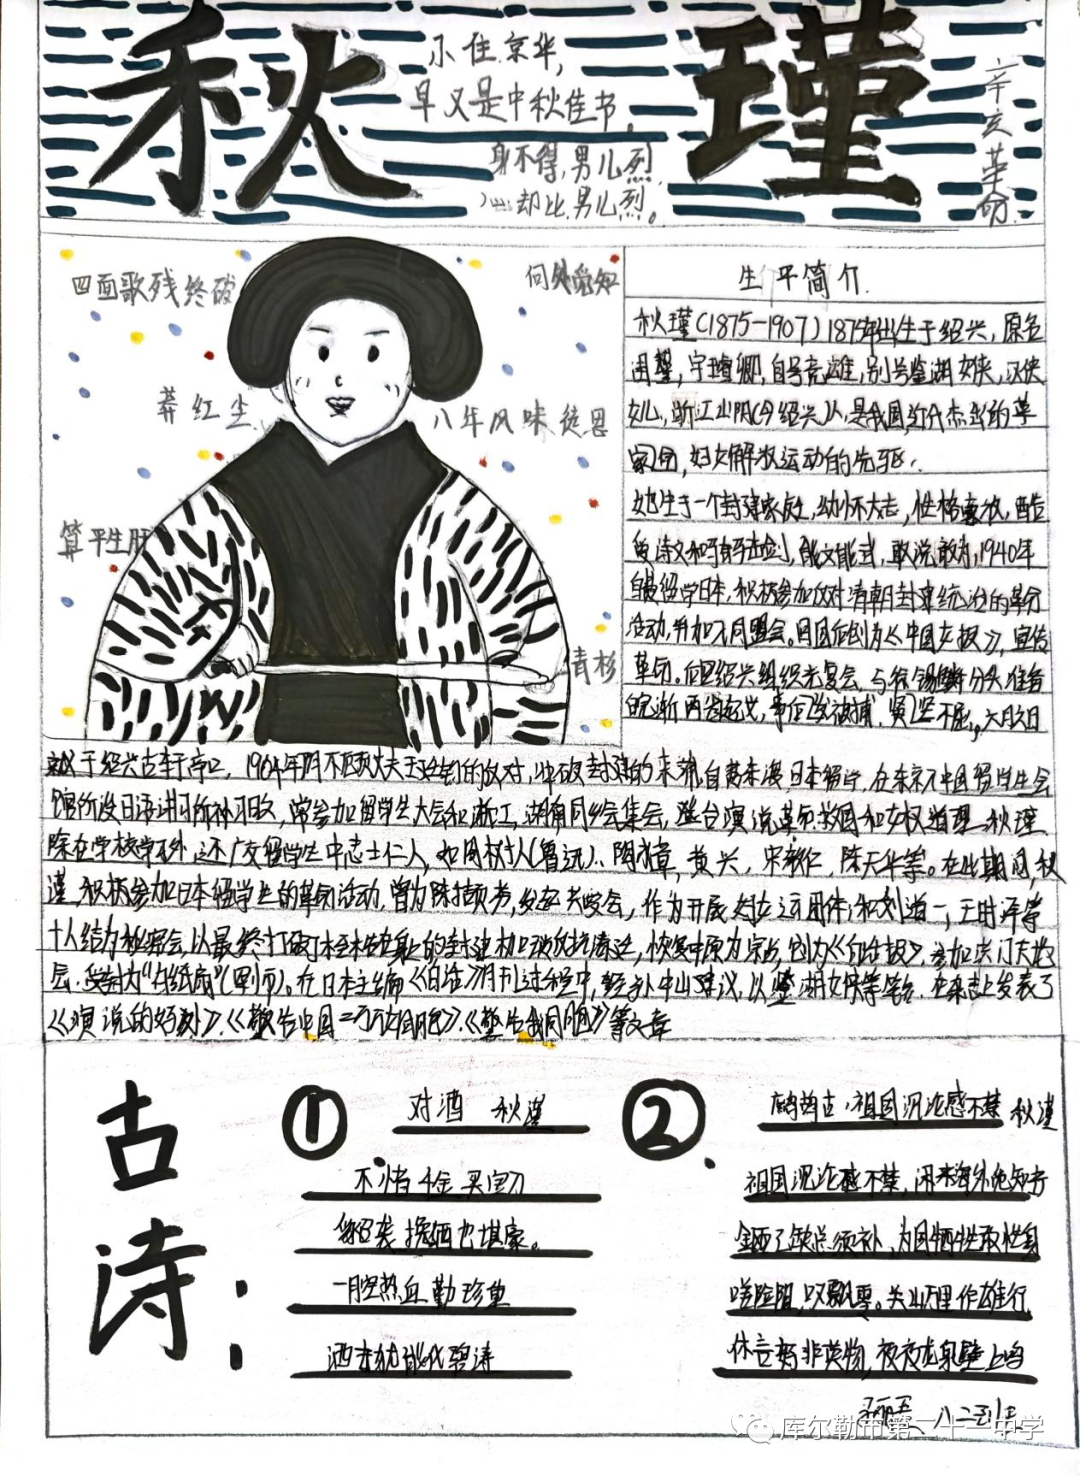 秋瑾
小住京华，
早又是中秋佳节。
身不得，男儿列，
心却比，男儿烈。
辛亥革命
四面歌残终破
何处觅知
莽红尘
八年风味徒思
算平生肝
青衫
生平简介.
秋瑾(1875-1907)1875年出生于绍兴，原名
闺瑾，字璿卿，自号竞雄，别号鉴湖女侠，汉侠
女儿，浙江山阴(今绍兴)人，是我国近代杰出的革
家，妇女解放运动的先驱.
她生于一个封建家庭，幼怀大志，性格豪放，酷
诗文和，能文能武，敢说敢为，1940年
留学日本，积极参加反对清朝封建统治的革命
活动，并加入同盟会。回国后创办《中国女报》，宣传
革命。后回绍兴组织光复会，与徐锡麟分头准备
皖浙两省起义，事因被捕，坚不屈，六月六日
于绍兴古轩亭口，1904年不顾丈夫的反对，冲破封建的束缚自费东渡日本留学，在东京入中国留学生会
馆所设日语讲习所补习日文，常参加留学生大会和浙江，湖南同乡会集会，登台演说革命救国和女权道理，秋瑾
除在学校学习外，还广交留学生中志士仁人，如周树人(鲁迅)、陶成章，黄兴，宋教仁，陈天华等。在此期间，秋
瑾，积极参加日本留学生的革命活动，曾为，发起共爱会，作为开展妇女运动团体；和刘道一，王时泽等
十人结为秘密会，以最终推翻，恢复中原为宗旨，创办《白话报》，参加洪门天地
会，受封为“白纸扇”(军师)。在日本主编《白话》月刊过程中，经孙中山建议，以鉴湖女侠等笔名，在杂志上发表了
《演说的好处》、《敬告中国二万万女同胞》、《警告我同胞》等文章
古诗：
① 对酒 秋瑾
不惜千金买宝刀
貂裘换酒也堪豪。
一腔热血勤珍重
洒去犹能化碧涛
② 鹧鸪古·祖国沉沦感不禁 秋瑾
祖国沉沦感不禁，闲来海外觅知音
金瓯已缺总须补，为国牺牲敢惜身
嗟险阻，叹飘零。关山万里作雄行
休言女子非英物，夜夜龙泉壁上鸣
八二班
库尔勒市第二十一中学